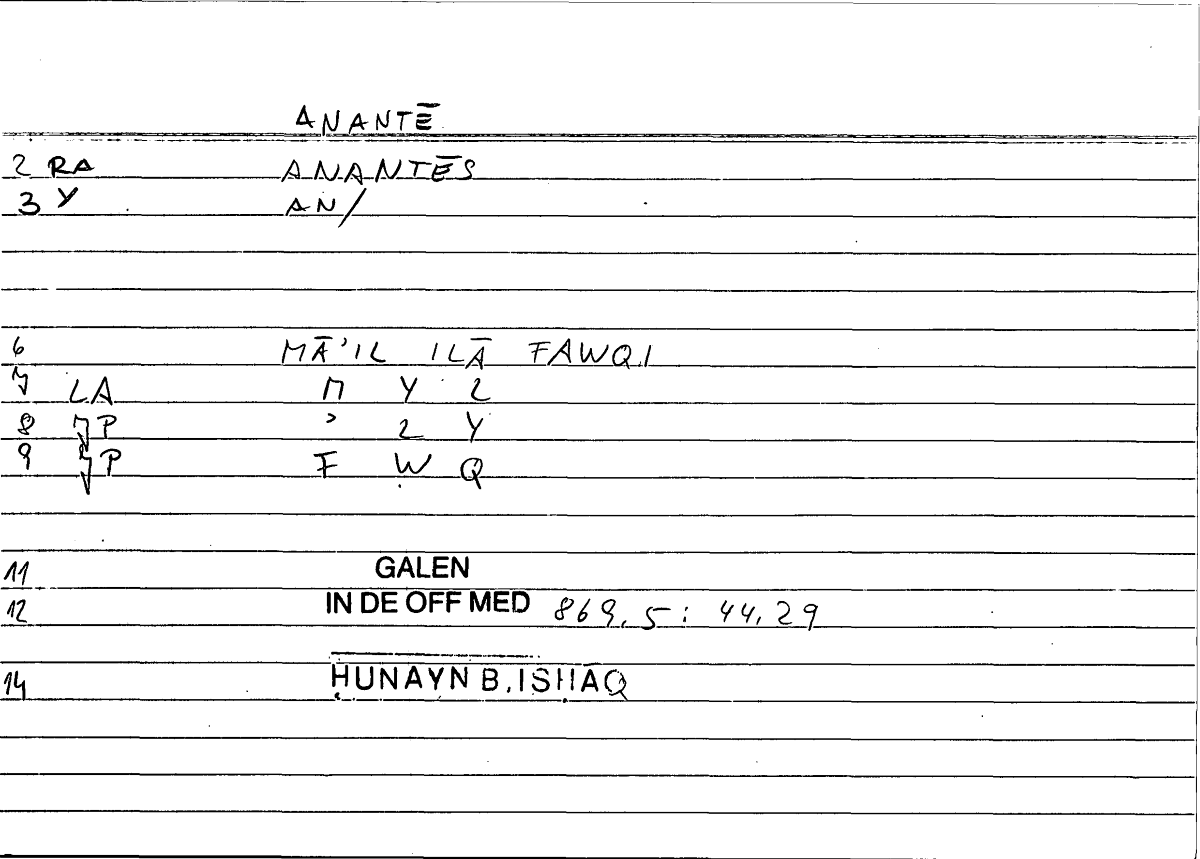 ANANTĒ
2 RA ANANTĒS
3 Y AN/
6 MĀʾIL ILĀ FAWQ.I
7 LA M Y L
8 JP ʾ L Y
9 JP F W Q
11 GALEN
12 IN DE OFF MED 869,5: 44,29
14 ḤUNAYN B. ISḤĀQ